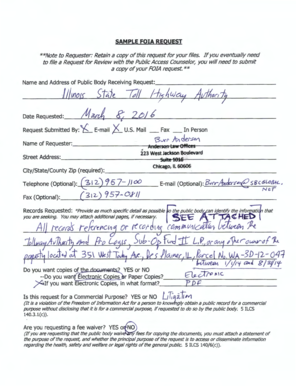 SAMPLE FOIA REQUEST
**Note to Requester: Retain a copy of this request for your files. If you eventually need
to file a Request for Review with the Public Access Counselor, you will need to submit
a copy of your FOIA request.**
Name and Address of Public Body Receiving Request:
Illinois State Toll Highway Authority
Date Requested: March 8, 2016
Request Submitted By: X E-mail X U.S. Mail Fax In Person
Name of Requester: Burr Anderson
Anderson Law Offices
223 West Jackson Boulevard
Street Address: Suite 1016
Chicago, IL 60606
City/State/County Zip (required):
Telephone (Optional): (312) 957-1100 E-mail (Optional): BurrAnderson@sbcglobal.
NET
Fax (Optional): (312) 957-0811
Records Requested: *Provide as much specific detail as possible so the public body can identify the information that
you are seeking. You may attach additional pages, if necessary. SEE ATTACHED
All records referencing or recording communication between the
Tollway Authority and Pro Logis, Sub-Op Fund II L.P, or any other owner of the
property located at 351 West Touhy Ave, Des Plaines, IL, Parcel No WA-3D-12-097
between 1/1/14 and 8/15/14
Do you want copies of the documents? YES or NO
-Do you want Electronic Copies or Paper Copies? Electronic
-If you want Electronic Copies, in what format? PDF
Is this request for a Commercial Purpose? YES or NO Litigation
(It is a violation of the Freedom of Information Act for a person to knowingly obtain a public record for a commercial
purpose without disclosing that it is for a commercial purpose, if requested to do so by the public body. 5 ILCS
140.3.1(c)).
Are you requesting a fee waiver? YES or NO
(If you are requesting that the public body waive any fees for copying the documents, you must attach a statement of
the purpose of the request, and whether the principal purpose of the request is to access or disseminate information
regarding the health, safety and welfare or legal rights of the general public. 5 ILCS 140/6(c)).